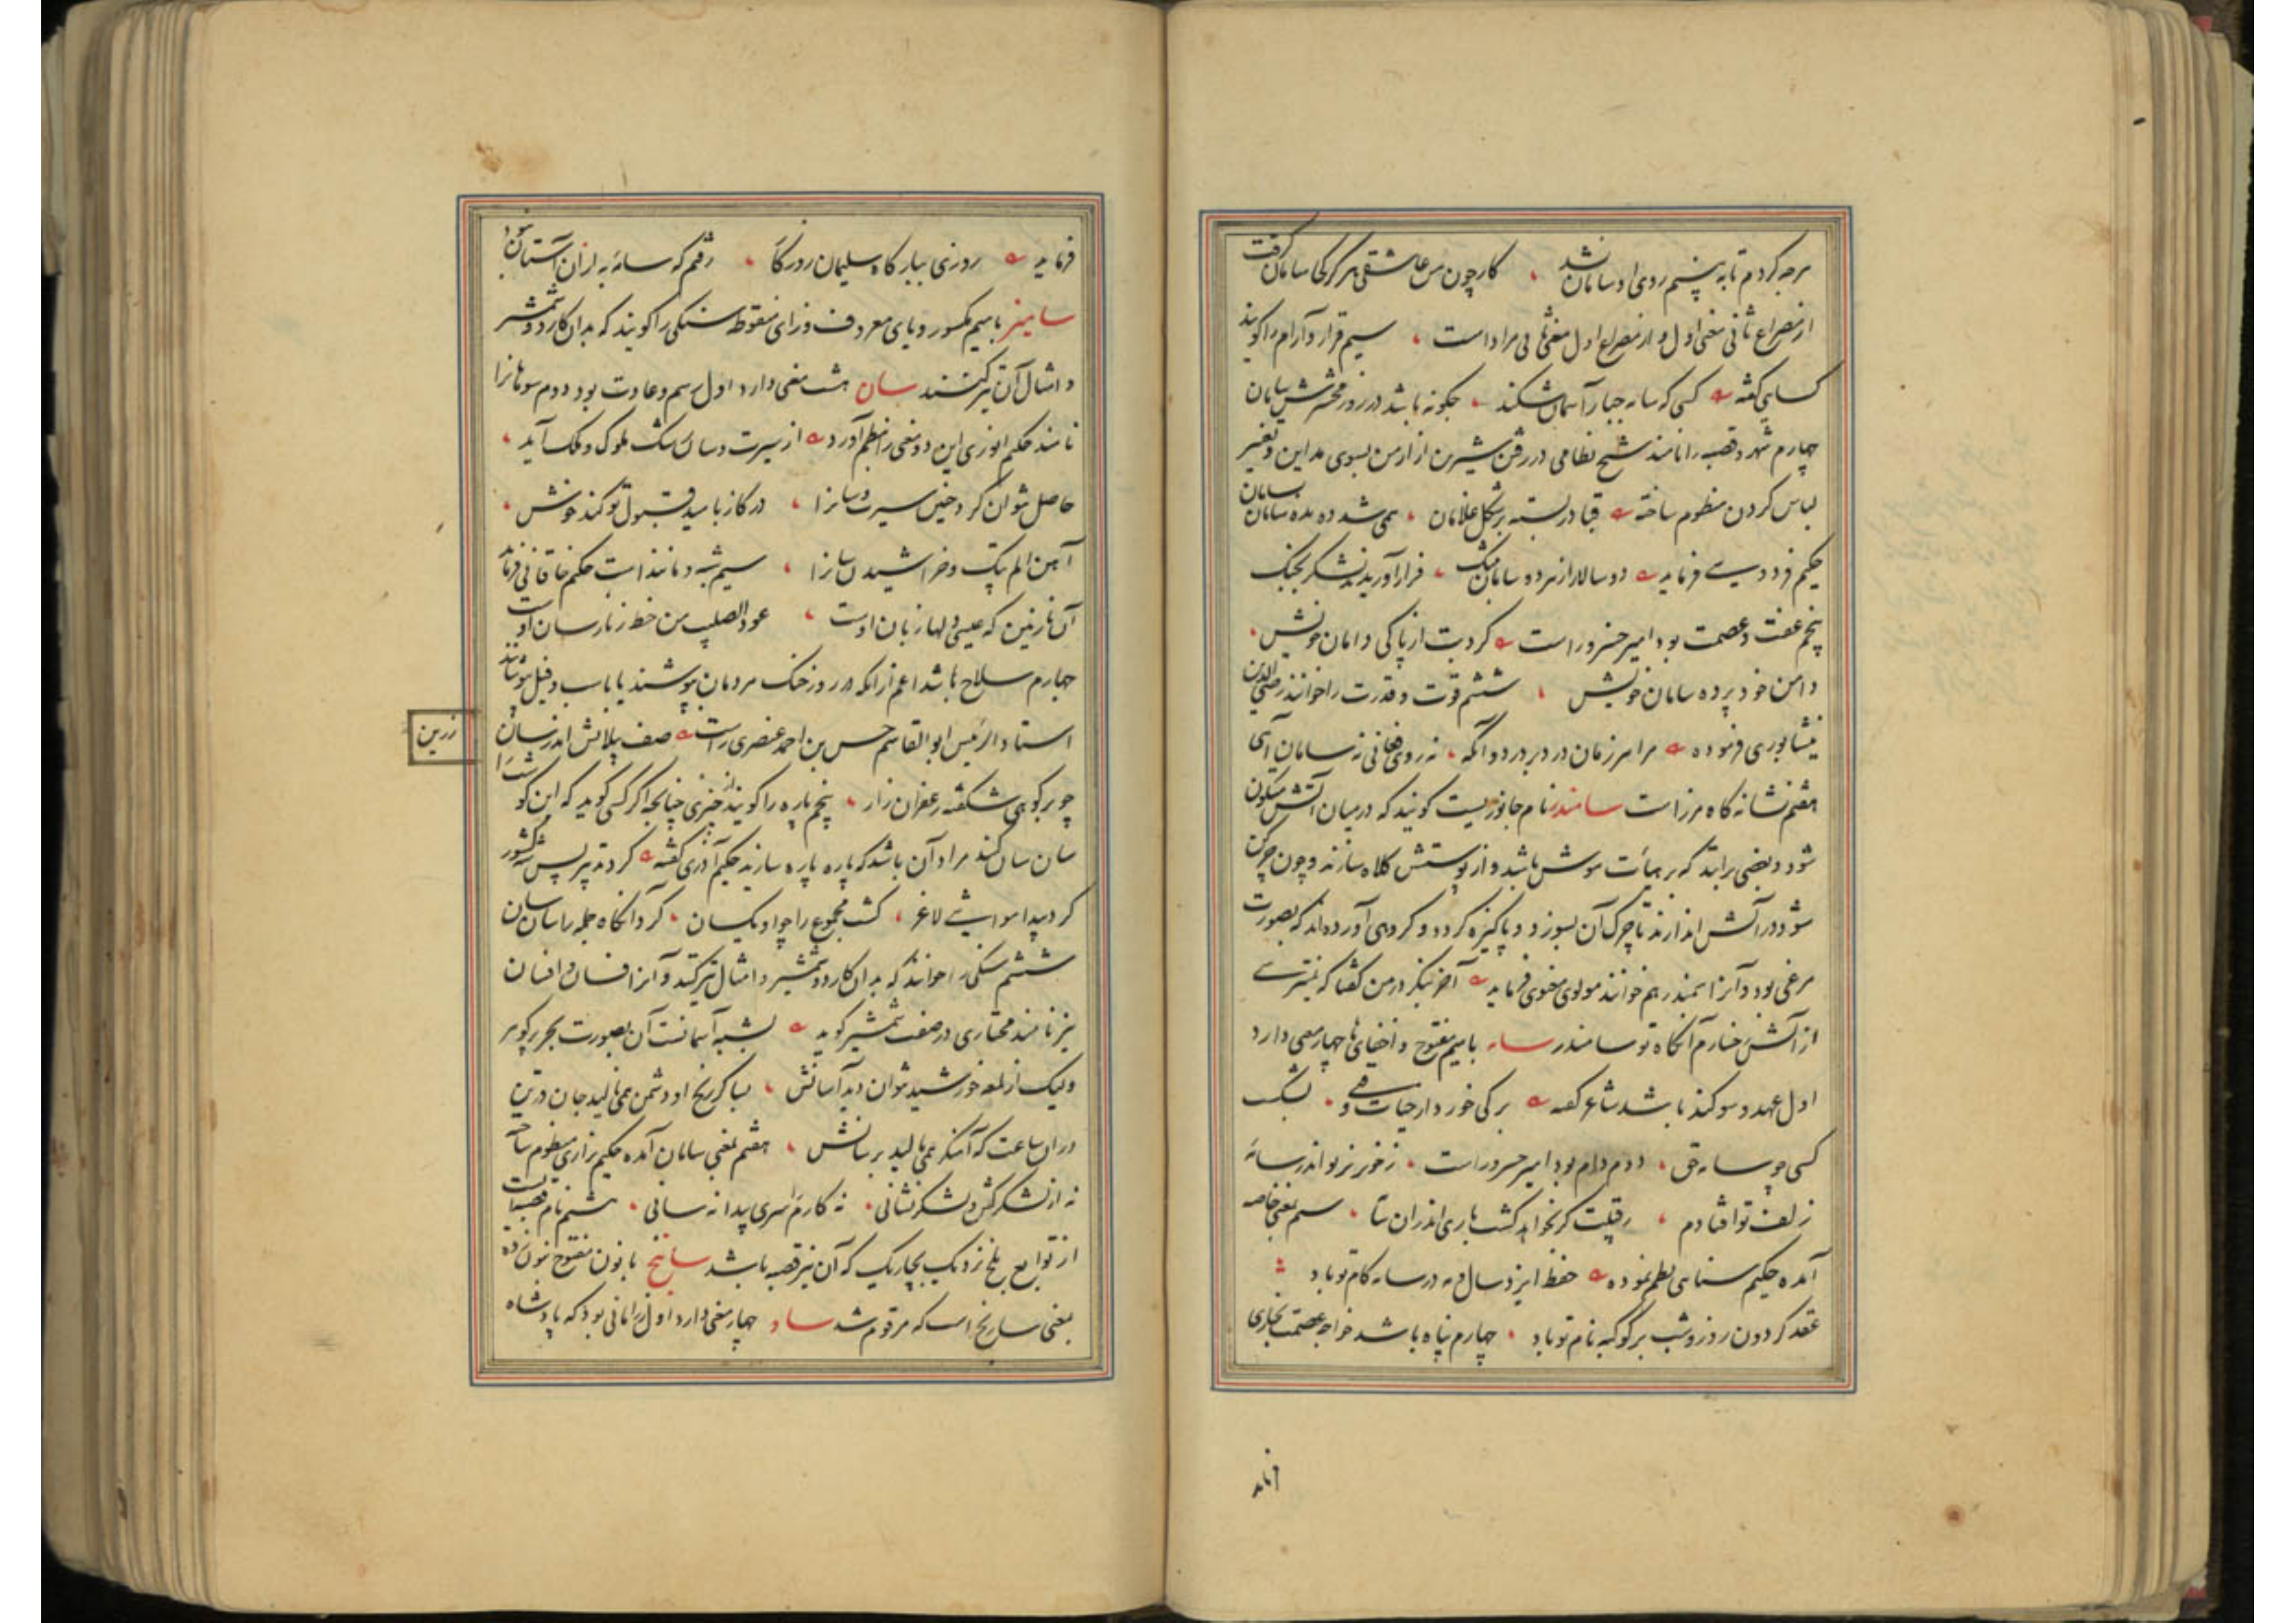 هرچه کردم تا به بینم روی او سامان نشد ، کار چون من عاشقی هرگز کی سامان گرفت
از مصراع ثانی معنی اول و از مصراع اول معنی ثانی مراد است ، سیم قرار و آرام را گویند
کسایی گفته کسی که سامه جبار آسمان شکند ، چگونه باشد در روز محشرش سامان
چهارم شهر و قصبه را نامند شیخ نظامی در رفتن شیرین از ارمن بسوی مداین و تغییر
لباس کردن منظوم ساخته قبا در بسته بر شکل غلامان ، همی شد ده بده سامان بسامان
حکیم فردوسی فرماید دو سالار از هر دو سامان بیک ، فراز آوریدند لشکر بجنگ
پنجم عفت و عصمت بود امیر خسرو راست کرد بت از پاکی دامان خویش ،
دامن خود پرده سامان خویش ، ششم قوت و قدرت را خوانند رضی الدین
نیشابوری فرموده مرا هر زمان در دبر درد و آنگه ، نه روی فغانی نه سامان آهی
هفتم نشانه گاه مرز است سامندر نام جانوریست گویند که در میان آتش متکون
شود و بعضی برانند که بر هیأت موش باشد و از پوستش کلاه سازند و چون چرکن
شود در آتش اندازند تا چرک آن بسوزد و پاکیزه گردد و گروهی آورده اند که بصورت
مرغی بود و آنرا سمندر هم خوانند مولوی معنوی فرماید آخر بنگر در من گفتا که نمیترسی
از آتش رخسارم آنگاه تو سامندر سامه با میم مفتوح و اخفای ها چهار معنی دارد
اول عهد و سوگند باشد شاعر گفته برکی خوردار حیات و ، بشکست
کسی چو سامه حق ، دوم دام بود امیر خسرو راست ، زخون ریز تو اندر سامه
زلف تو افتادم ، رقیبت گر نخواهد کشت باری اندران سا ، سیم بمعنی خاصه
آمده حکیم سنایی نظم نموده حفظ ایزد سال و مه در سامه کام تو باد
عقد گردون روز و شب بر کوکبه نام تو باد ، چهارم پناه باشد خواجه عصمت بخاری
فرماید
فرماید روزی ببارگاه سلیمان روزگار ، رفتم که سامه به از آن آستان نبود
سامیز با میم مکسور و یای معروف و زای منقوط سنگی را گویند که بدان کارد و شمشیر
و امثال آن تیز کنند سان هشت معنی دارد اول رسم و عادت بود دوم سوهانرا
نامند حکیم انوری این دو معنی را نظم آورد از سیرت و سان رشک ملوک و ملک آید ،
حاصل نتوان کرد چنین سیرت و سانرا ، در گاز بامید قبول تو کند خوش ،
آهن الم پتک و خراشیدن سانرا ، سیم شبه و مانند است حکیم خاقانی فرماید
آن نازنین که عیسی دلها زبان اوست ، عود الصلیب من خط زنار سان اوست
چهارم سلاح باشد اعم از آنکه در روز جنگ مردمان پوشند یا باسب و فیل پوشانند
استاد الرئیس ابوالقاسم حسن بن احمد عنصری راست صف پیلانش اندر سان
زرین
چو بر کوهی شکفته زعفران زار ، پنجم پاره را گویند از چیزی چنانچه اگر کسی گوید که این گوشت را
سان سان کنند مراد آن باشد که پاره پاره سازند حکیم آذری گفته کرد تدبیر پس شه کشور
کرد پیدا مواشی لاغر ، کشت مجموع را چو او یکسان ، کرد آنگاه جمله را سان سان
ششم سنگی را خوانند که بدان کارد و شمشیر و امثال تیز کنند و آنرا فسان و افسان
نیز نامند مختاری در صفت شمشیر گوید بشبه آسمانست آن بصورت بحر پر گوهر
ولیک از لمعه خورشید توان دید آسانش ، بسا کز رنج او دشمن همی نالید جان در تن
دران ساعت که آهنگر همی مالید بر سانش ، هفتم بمعنی سامان آمده حکیم نزاری منظوم ساخته
نه از لشکرکش و لشکر نشانی ، نه کارم را سری پیدا نه سانی ، هشتم نام قصبه ایست
از توابع بلخ نزدیک بچاریک که آن نیز قصبه باشد سانج با نون مفتوح بنون زده
بمعنی سارنج است که مرقوم شد ساو چهار معنی دارد اول زر امانی بود که پادشاه